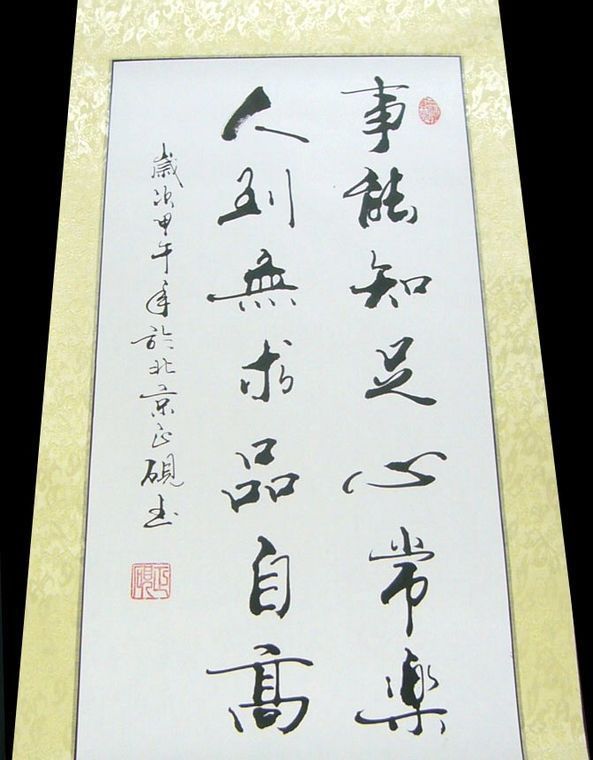 事能知足心常樂
人到無求品自高
歲次甲午年於北京正硯書
正硯